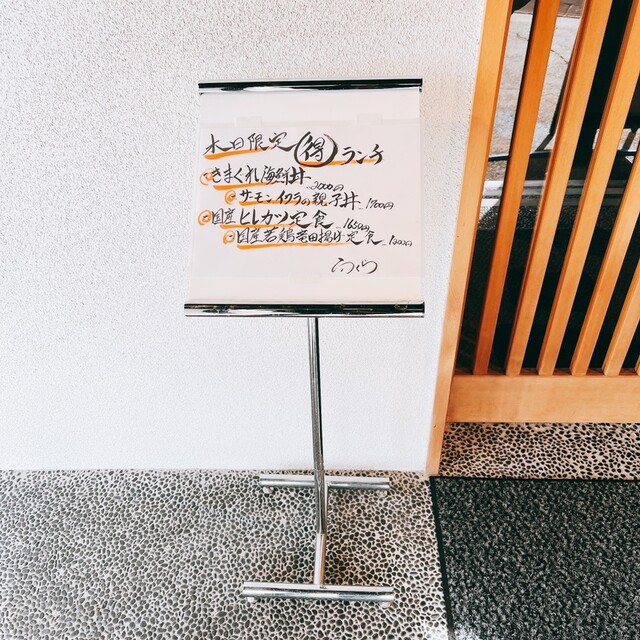 木日限定 得 ランチ
・きまぐれ海鮮丼 …2000円
・サーモンイクラの親子丼 …1700円
・国産ヒレカツ定食 …1650円
・国産若鶏竜田揚げ定食